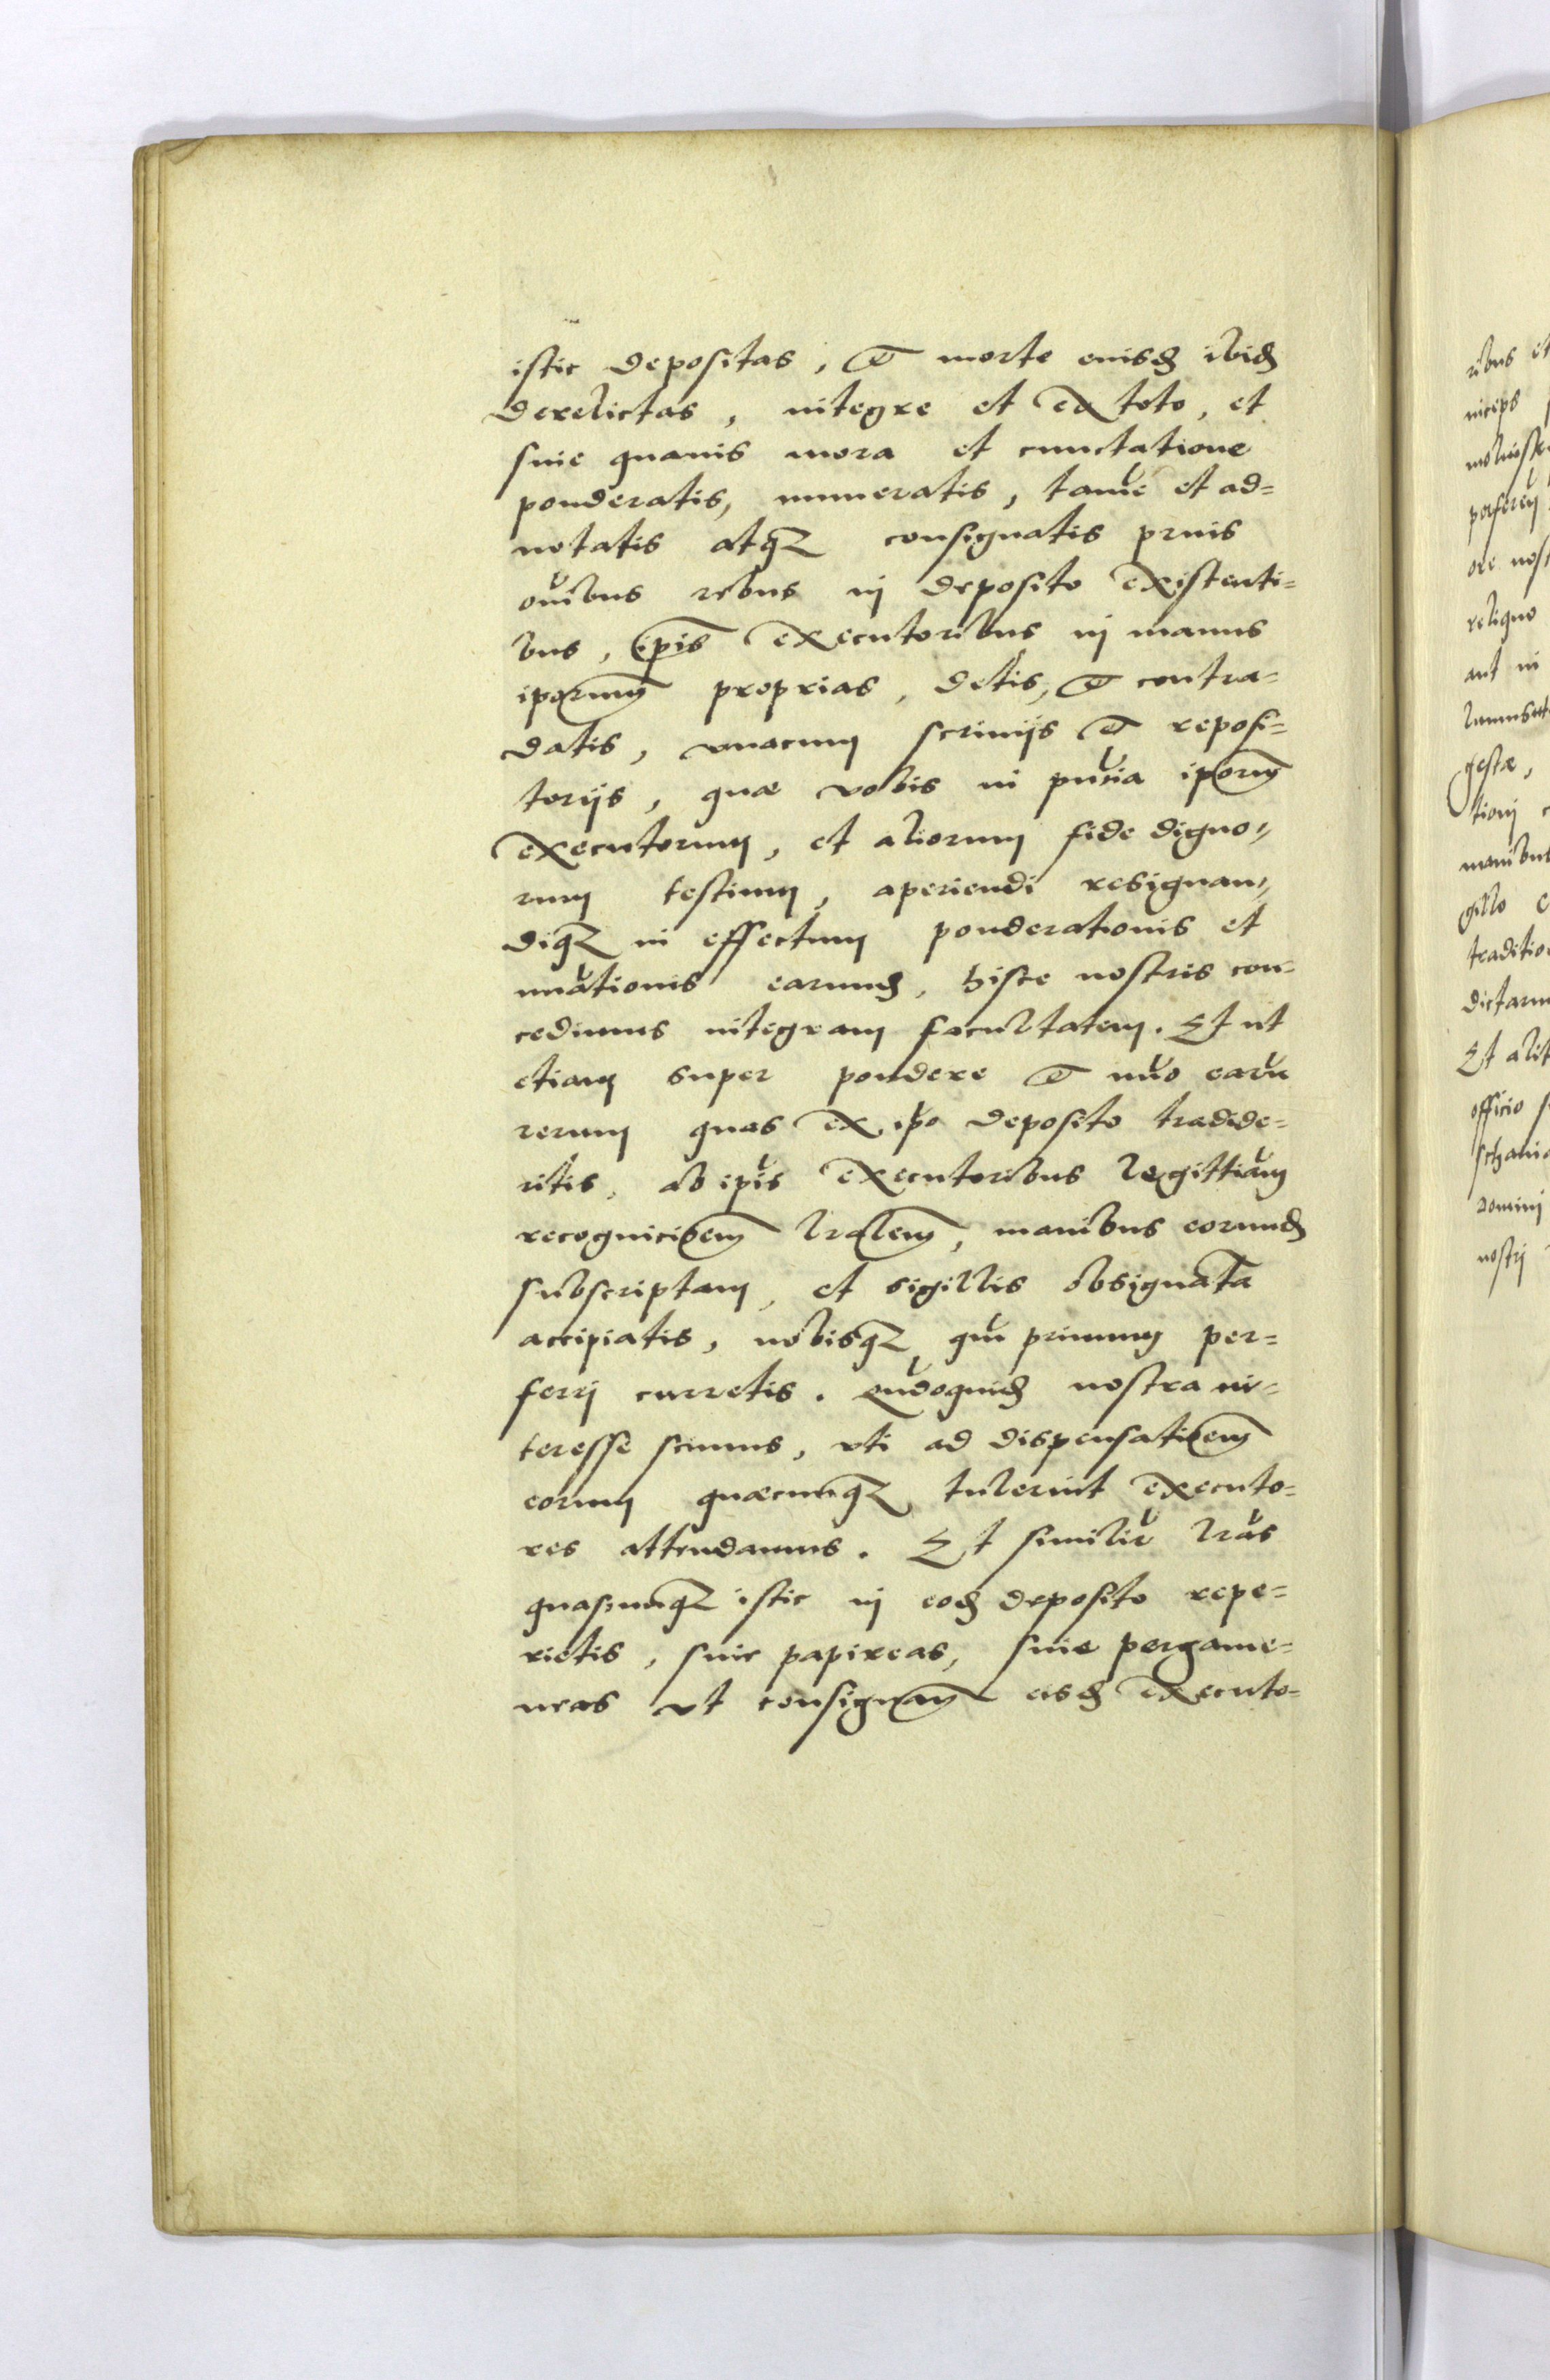 istic depositas, et morte eiusd ibid
derelictas, integre et ex toto, et
sine quauis mora et cunctatione
ponderatis, numeratis, tamē et ad=
notatis atqꝫ consignatis prius
oībus rebus in deposito existenti=
bus, ip̄is executoribus in manus
ip̄orum proprias, detis, et contra=
datis, vnacum scrinijs et reposi=
torijs, quae vobis in pn̄tia ip̄orum
executorum, et aliorum fide digno=
rum testium, aperiendi resignan=
diqꝫ in effectum ponderationis et
nūationis earund, hisce nostris con=
cedimus integram facultatem. Et ut
etiam super pondere et nūo earū
rerum quas ex ip̄o deposito tradide=
ritis, ab ip̄is executoribus legittiām
recognici͞oem lr̄alem, manibus eorund
subscriptam, et sigillis obsignatā
accipiatis, nobisqꝫ quī primum per=
ferri curretis. Qūdoquid nostra in=
teresse scimus, vti ad dispensati͞oem
eorum quaecunqꝫ tulerint executo=
res attendamus. Et similir̄ lr̄as
quascunqꝫ istic in eod deposito repe=
rietis, siue papireas, siue pergame=
neas vt consignām eisd executo=
ribus et
niceps
ore nos
religno
aut in
gestæ,
tioni
manibus
gillo
traditio
dictarum
Et alit
officio
domini
nostri